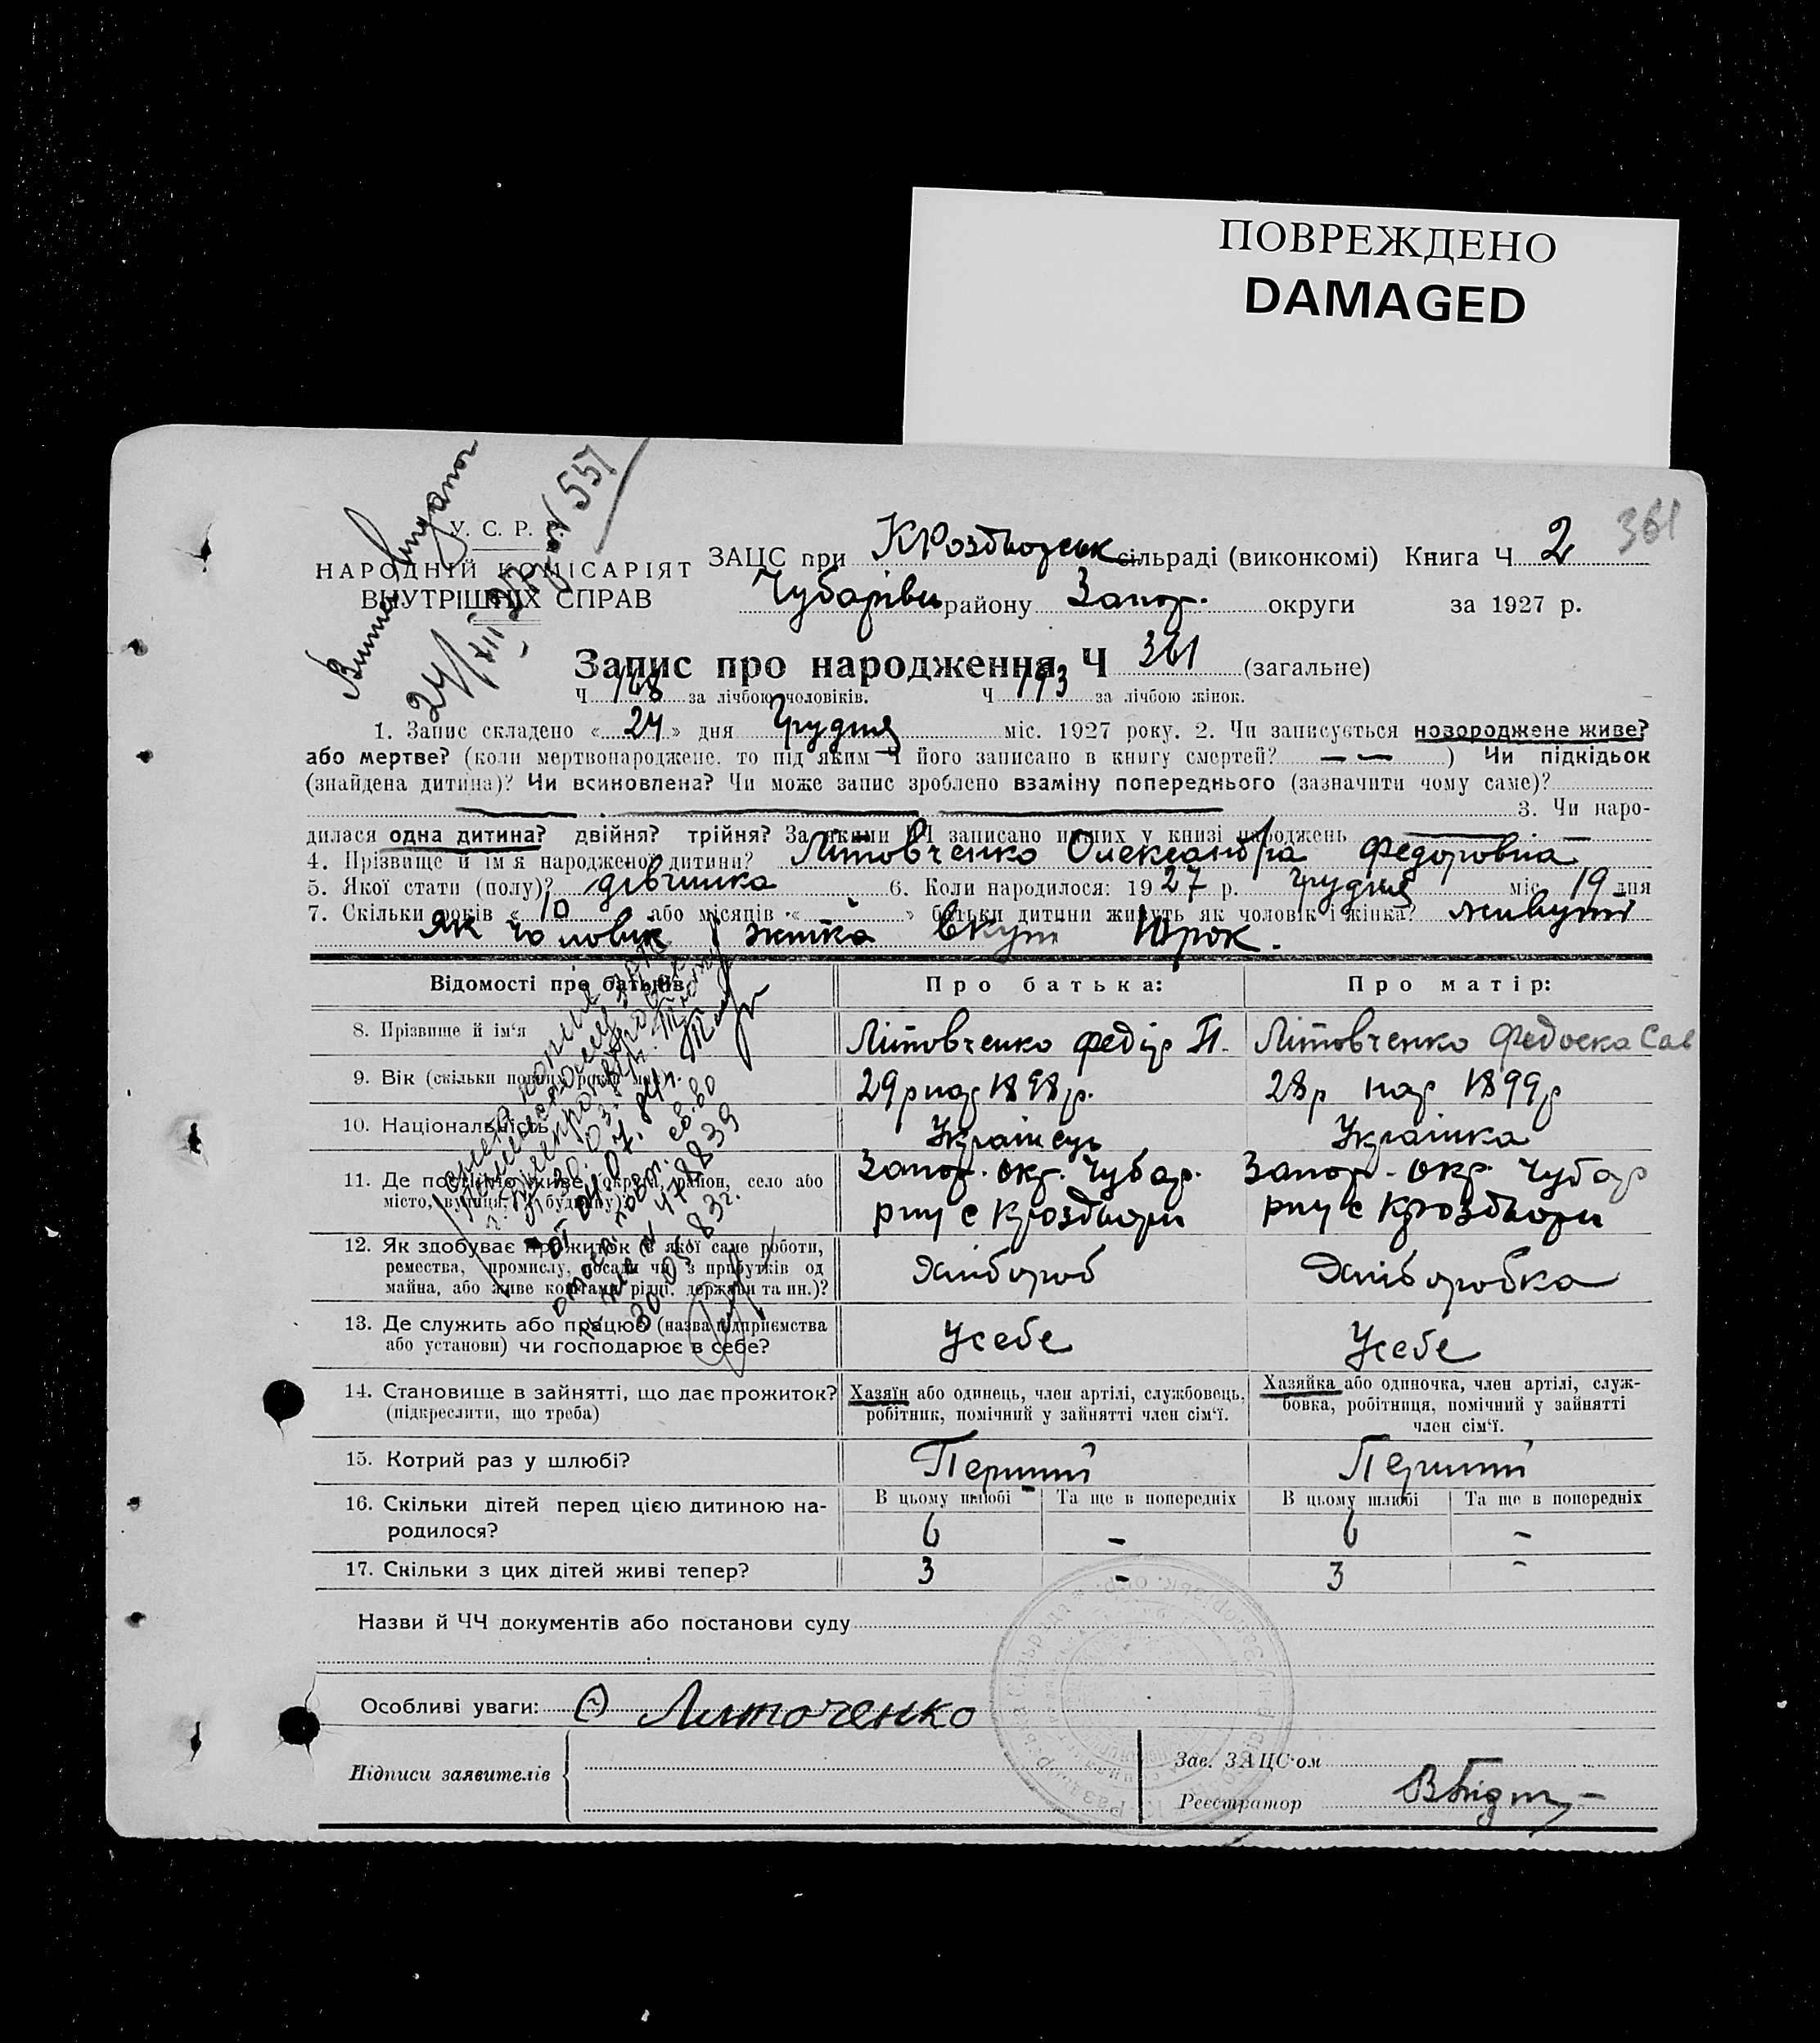 ПОВРЕЖДЕНО
DAMAGED
361
У. С. Р. Р.
НАРОДНІЙ КОМІСАРІЯТ
ВНУТРІШНІХ СПРАВ
ЗАЦС при КРоздорськ сільраді (виконкомі) Книга Ч 2
Чубарівк району Запор. округи за 1927 р.
Запис про народження Ч 361 (загальне)
Ч 168 за лічбою чоловіків. Ч 193 за лічбою жінок.
1. Запис складено « 24 » дня Грудня міс. 1927 року. 2. Чи записується новороджене живе?
або мертве? (коли мертвонароджене, то під яким Ч його записано в книгу смертей? — —) Чи підкідьок
(знайдена дитина)? Чи всиновлена? Чи може запис зроблено взаміну попереднього (зазначити чому саме)?
3. Чи наро-
дилася одна дитина? двійня? трійня? За якими ЧЧ записано инших у книзі народжень
4. Прізвище й ім'я народженої дитини? Літовченко Олександра Федоровна
5. Якої стати (полу)? дівчинка 6. Коли народилося: 1927 р. Грудня міс. 19 дня
7. Скільки років « 10 або місяців « » батьки дитини живуть як чоловік і жінка? живуть
як чоловік і жінка вкупі 10рок.
Відомості про батьків Про батька: Про матір:
8. Прізвище й ім'я Літовченко Федір П. Літовченко Федоска Сав
9. Вік (скільки повних років має) 29р нар 1898р. 28р нар 1899р
10. Національність Українець Українка
11. Де постійно живе (округа, район, село або Запор. окр. Чубар. Запор. окр. Чубар
місто, вулиця, Ч будинку) рну с Кроздори рну с Кроздори
12. Як здобуває прожиток (з якої саме роботи,
ремества, промислу, посади чи з прибутків од Хлібороб Хліборобка
майна, або живе коштами рідні, держави та ин.)?
13. Де служить або працює (назва підприємства Усебе Усебе
або установи) чи господарює в себе?
14. Становище в зайнятті, що дає прожиток? Хазяїн або одинець, член артілі, службовець, Хазяйка або одиночка, член артілі, служ-
(підкреслити, що треба) робітник, помічний у зайнятті член сім'ї. бовка, робітниця, помічний у зайнятті
член сім'ї.
15. Котрий раз у шлюбі? Перший Перший
16. Скільки дітей перед цією дитиною на- В цьому шлюбі Та ще в попередніх В цьому шлюбі Та ще в попередніх
родилося? 6 - 6 -
17. Скільки з цих дітей живі тепер? 3 - 3 -
Назви й ЧЧ документів або постанови суду
Особливі уваги: Литоченко
Підписи заявителів
Зав. ЗАЦС'ом
Реєстратор